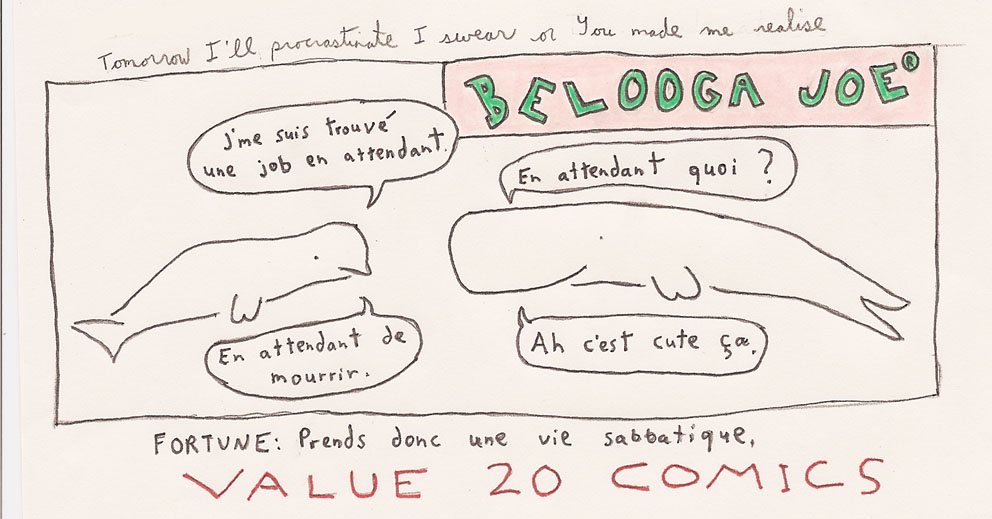 Tomorrow I'll procrastinate I swear or You made me realise
BELOOGA JOE®
j'me suis trouvé
une job en attendant.
En attendant quoi ?
En attendant de
mourrir.
Ah c'est cute ça.
FORTUNE: Prends donc une vie sabbatique,
VALUE 20 COMICS